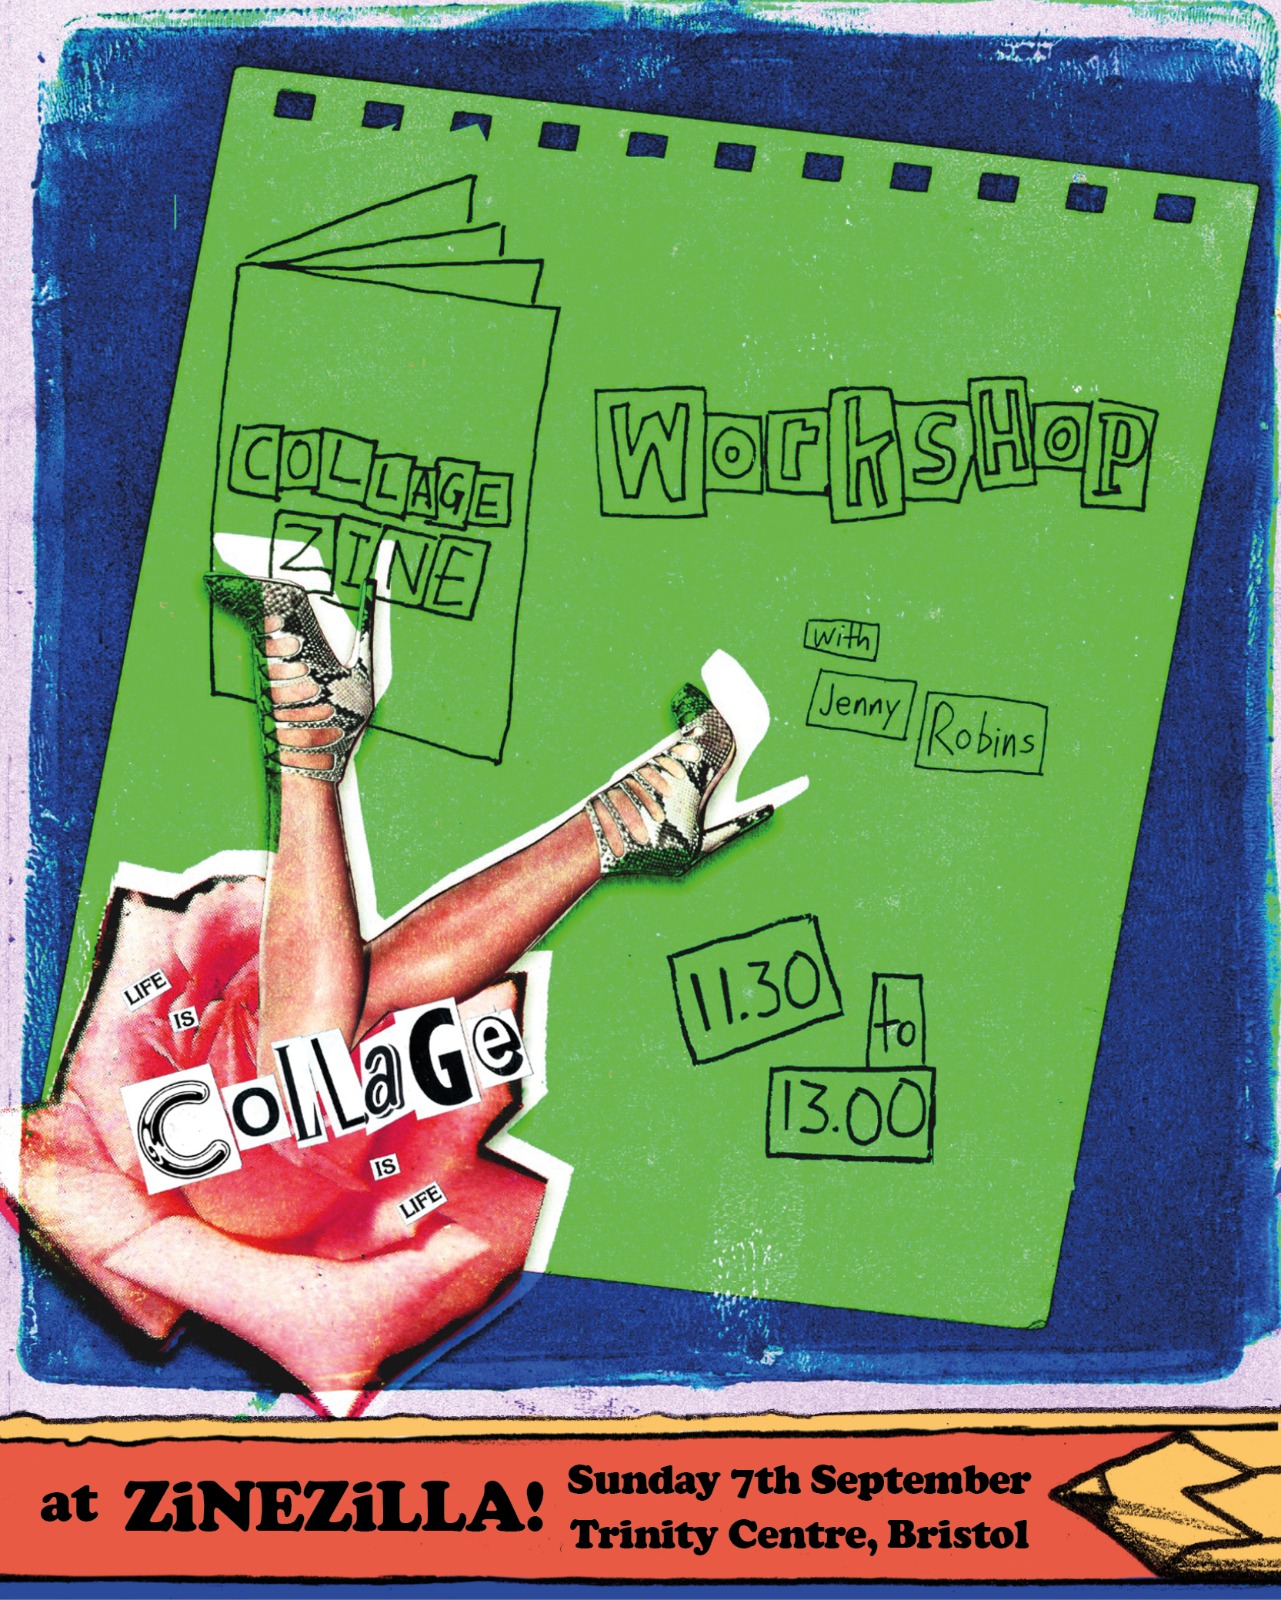 COLLAGE
ZINE
WorksHop
with
Jenny Robins
11.30
to
13.00
LIFE
IS
CollaGe
IS
LIFE
at ZiNEZiLLA!
Sunday 7th September
Trinity Centre, Bristol